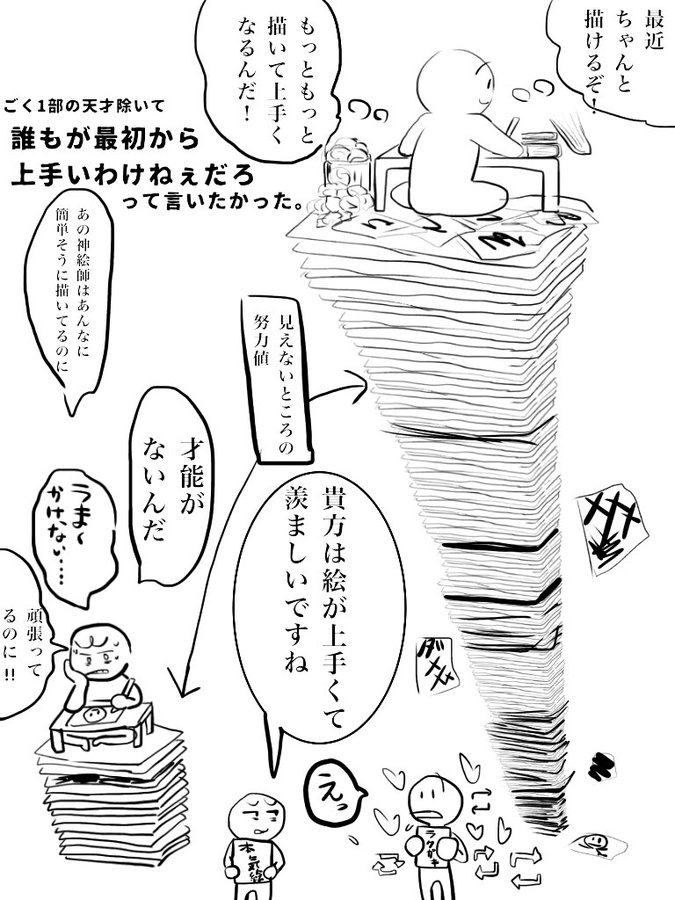 最近
ちゃんと
描けるぞ！
もっともっと
描いて上手く
なるんだ！
ごく1部の天才除いて
誰もが最初から
上手いわけねぇだろ
って言いたかった。
あの神絵師はあんなに
簡単そうに描いてるのに
見えないところの
努力値
才能が
ないんだ
うま〜
かけない……
頑張って
るのに!!
貴方は絵が上手くて
羨ましいですね
えっ
本気絵
ラクガキ